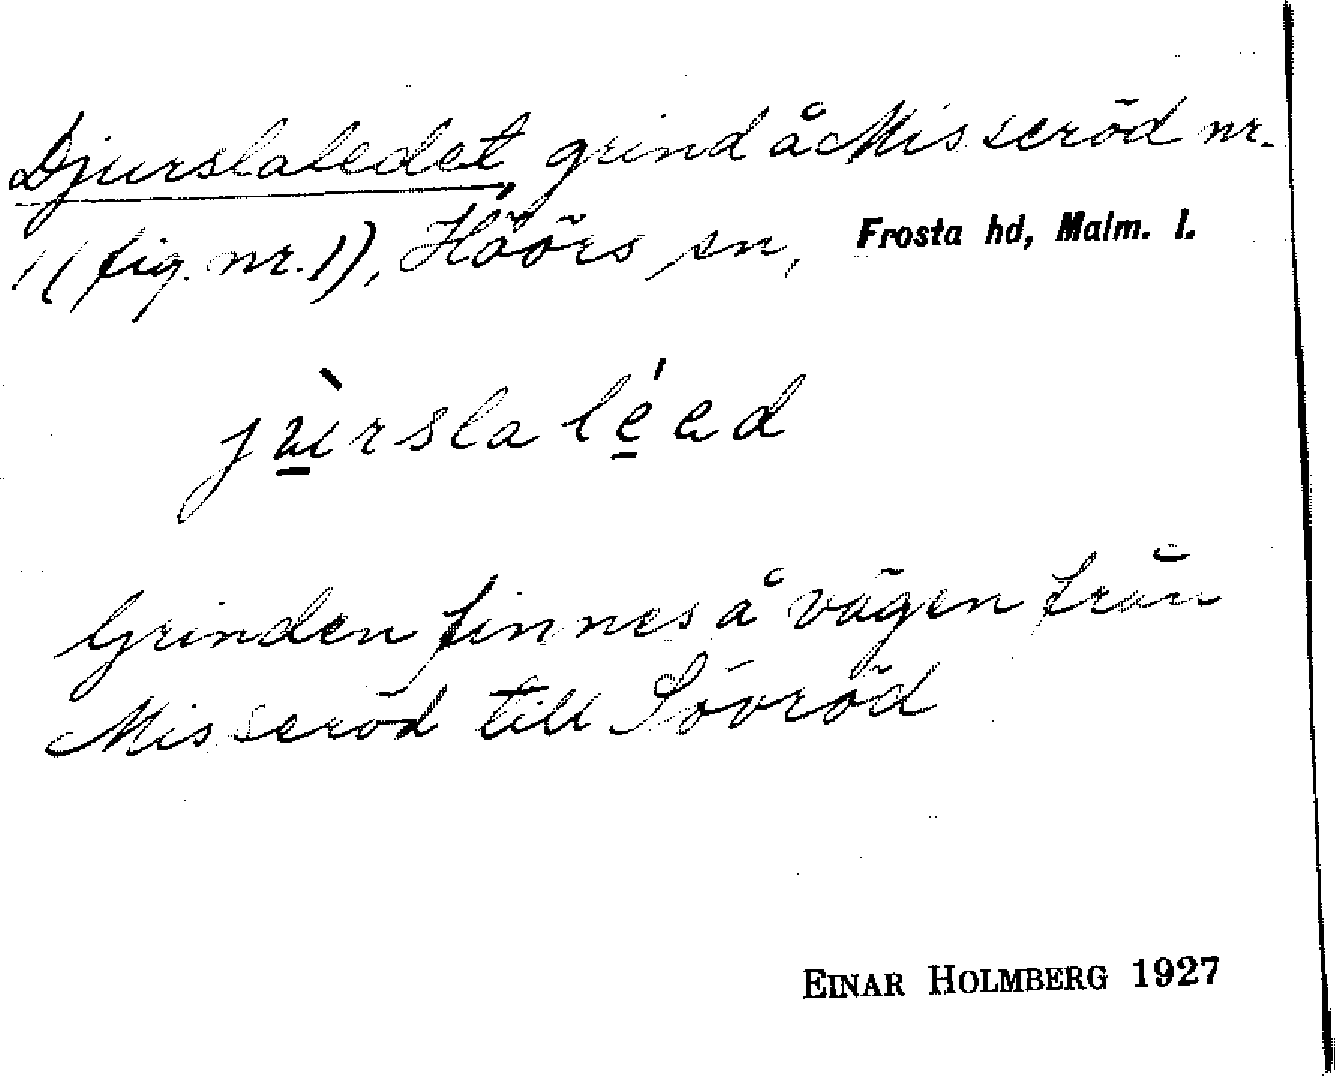 Djurslaledet, grind å Misseröd nr.
1 (fig. nr. 1), Höörs sn, Frosta hd, Malm. l.
jùrslaléed
Grinden finnes å vägen från
Misseröd till Sövröd
EINAR HOLMBERG 1927